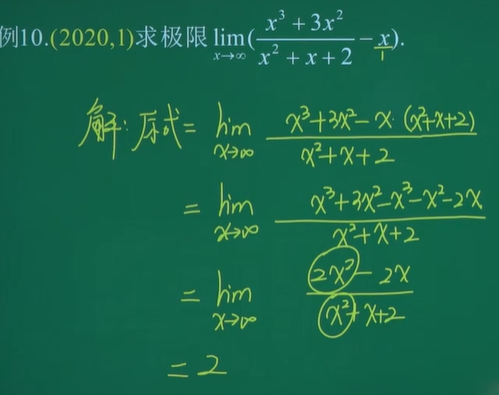 例10.(2020,1)求极限 lim_{x→∞}(\frac{x³+3x²}{x²+x+2}-\frac{x}{1}).
解:原式= lim_{x→∞} \frac{x³+3x²-x·(x²+x+2)}{x²+x+2}
= lim_{x→∞} \frac{x³+3x²-x³-x²-2x}{x²+x+2}
= lim_{x→∞} \frac{2x²-2x}{x²+x+2}
= 2